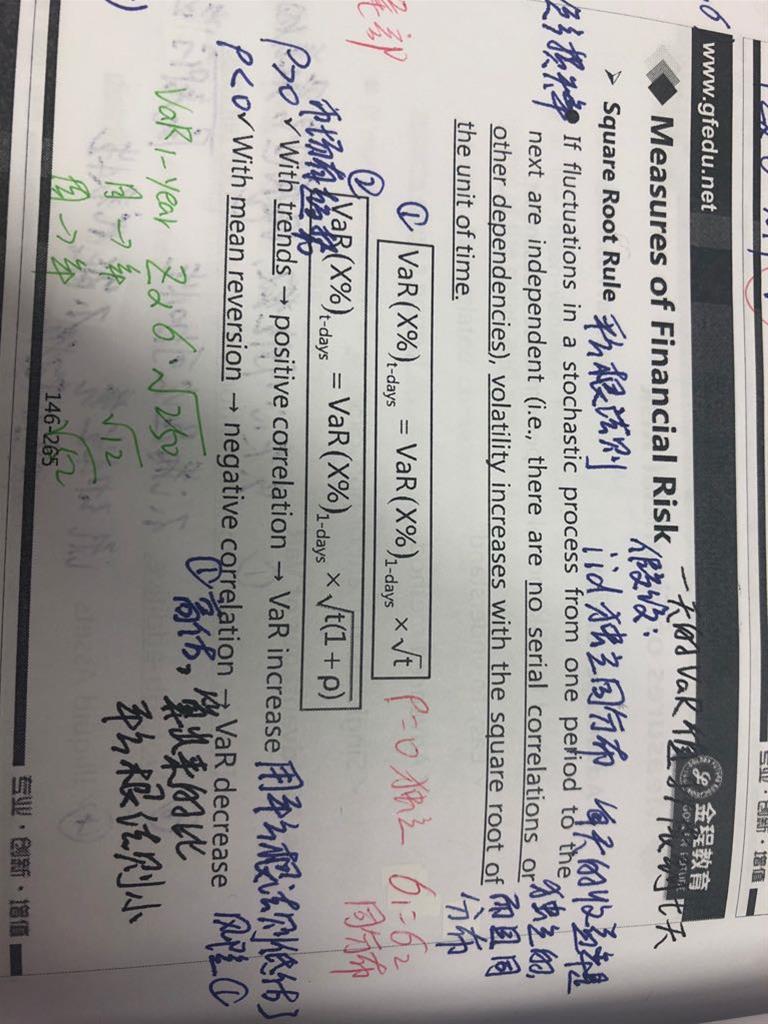 www.gfedu.net
金程教育
一天的VaR值
Measures of Financial Risk
假设:
Square Root Rule 平方根法则
iid 独立同分布
每天的收益率是
If fluctuations in a stochastic process from one period to the
独立的,
next are independent (i.e., there are no serial correlations or
而且同
分布
other dependencies), volatility increases with the square root of
the unit of time.
① VaR(X%)t-days = VaR(X%)1-days × √t
ρ=0 独立 σ1=σ2
同分布
② VaR(X%)t-days = VaR(X%)1-days × √t(1+ρ)
市场有趋势
ρ>0 ✓ With trends → positive correlation → VaR increase
用平方根法则低估了
风险①
ρ<0 ✓ With mean reversion → negative correlation → VaR decrease
①高估,
算出来的比
平方根法则小
VaR 1-year Zασ·√250
月→年 √12
周→年 √52
146-265
专业·创新·增值